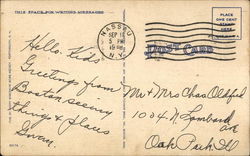 THIS SPACE FOR WRITING MESSAGES
NASSAU
SEP 1
5 PM
N.Y.
PLACE
ONE CENT
STAMP
HERE
Hello Kids
Greetings from
Boston seeing
things & places
Mr & Mrs Chas Oldfed
1004 N Lombard
av
Oak Park Ill